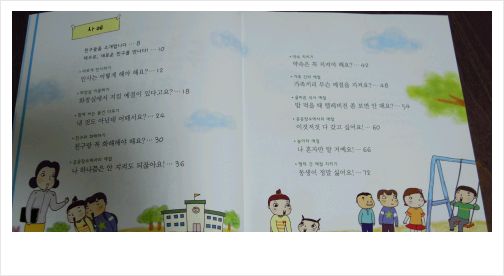 차례
친구들을 소개합니다 … 8
태우로, 새로운 친구를 만나다! … 10
• 바르게 인사하기
인사는 어떻게 해야 해요? … 12
• 화장실 이용하기
화장실에서 지킬 예절이 있다고요? … 18
• 함께 쓰는 물건 다루기
내 것도 아닌데 어때서요? … 24
• 친구와 화해하기
친구랑 꼭 화해해야 해요? … 30
• 공공장소에서의 예절
나 하나쯤은 안 지켜도 되잖아요! … 36
• 약속 지키기
약속은 꼭 지켜야 해요? … 42
• 가족 간의 예절
가족끼리 무슨 예절을 지켜요? … 48
• 올바른 식사 예절
밥 먹을 때 텔레비전 좀 보면 안 돼요? … 54
• 공공장소에서의 예절
이것저것 다 갖고 싶어요! … 60
• 놀이터 예절
나 혼자만 탈 거예요! … 66
• 형제 간 예절 지키기
동생이 정말 싫어요! … 72